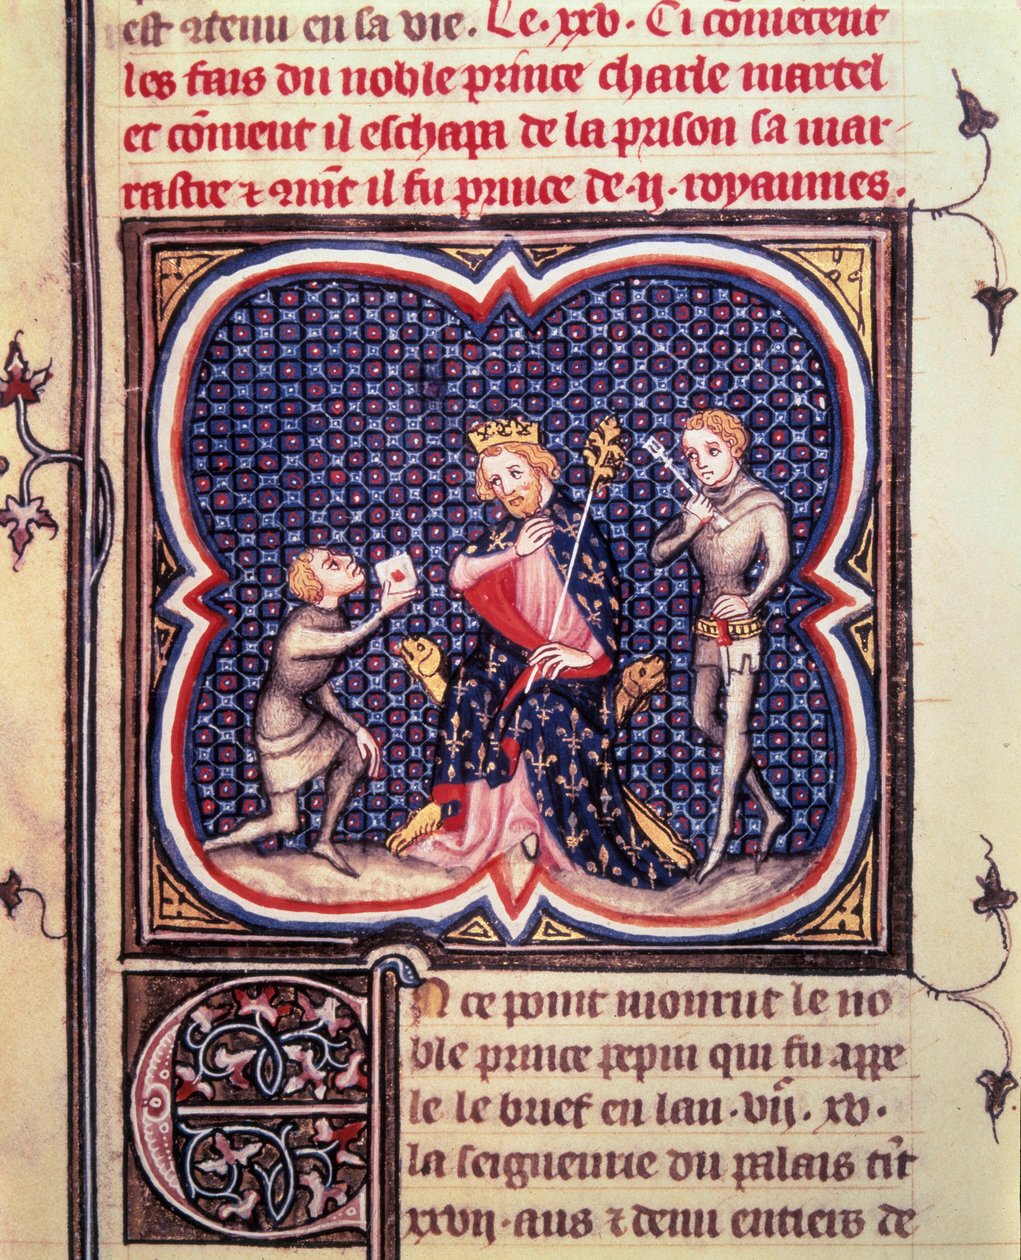 est ⁊ tenu en sa vie. Le .xxv. Ci cōmencent
les fais du noble prince charle martel
et cōment il eschapa de la prison sa mar-
rastre ⁊ ⁊ cōmēt il fu prince de .ij. royaumes.
En ce point mourut le no
ble prince pepin qui fu appe
le le brief en lan .vijͨ. xv.
la seigneurie du palais tīt
xxvij. ans ⁊ demi entiers de